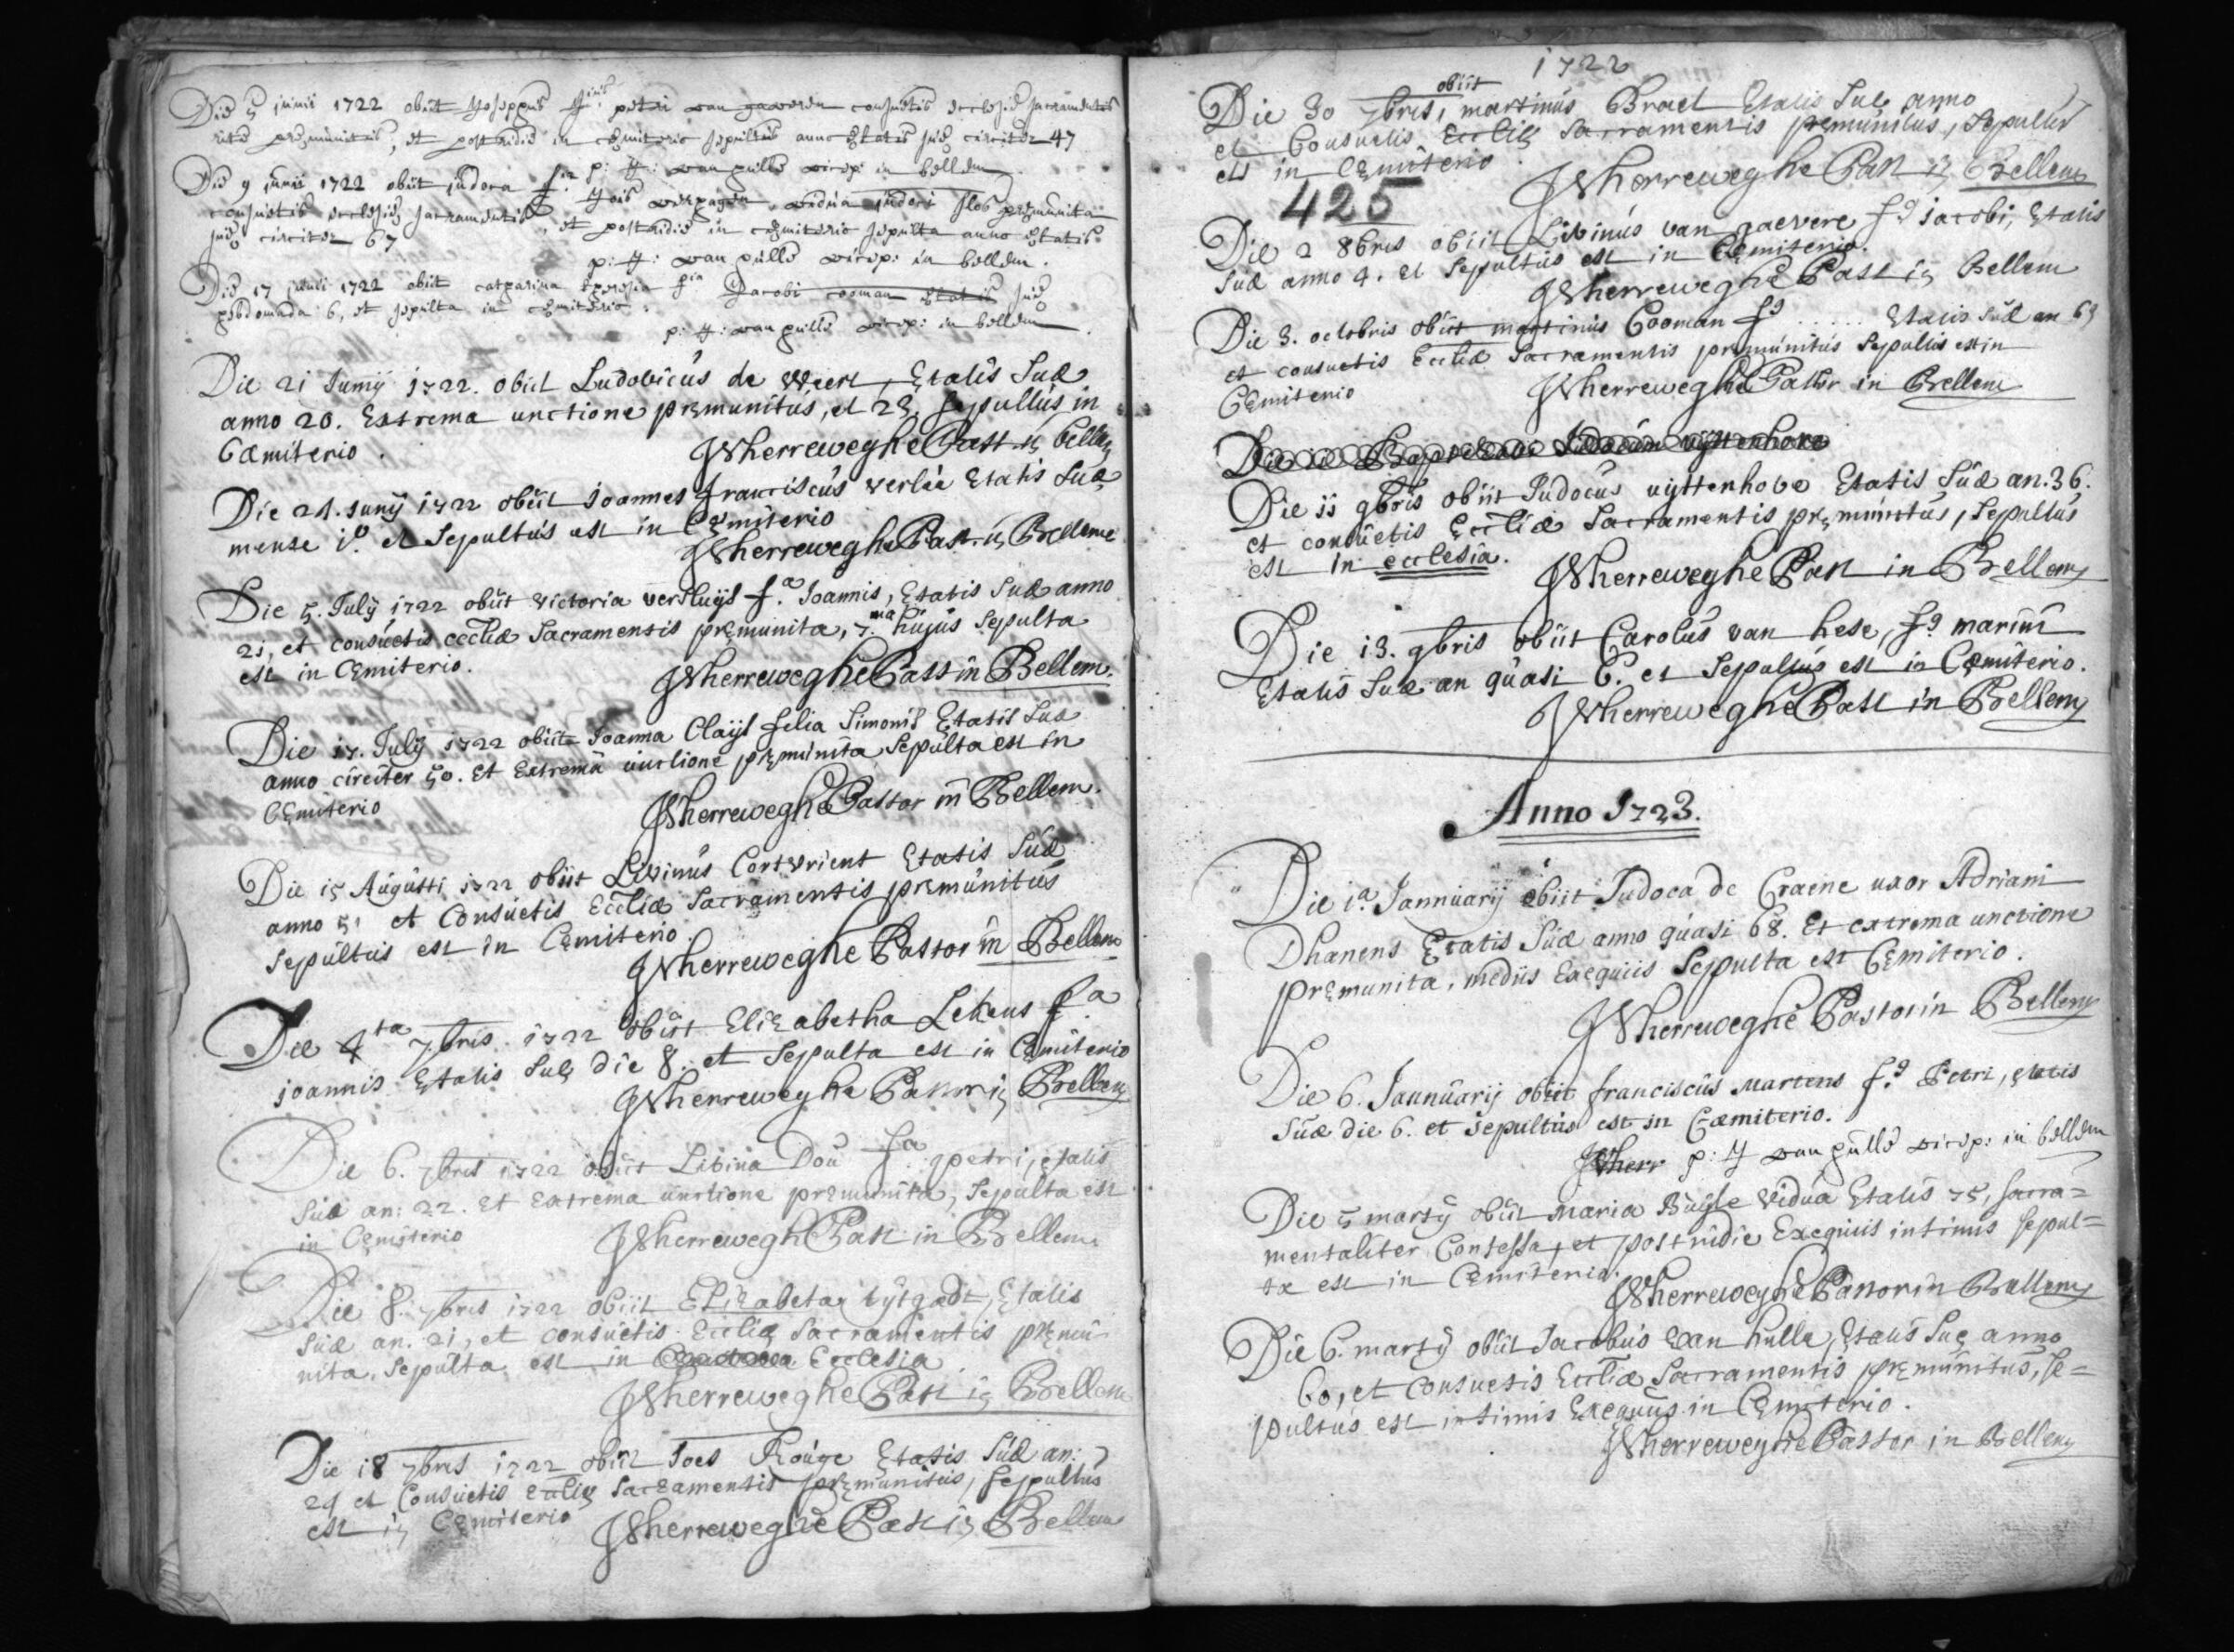 Die 5 junii 1722 obiit Josephus fius petri van gaveren consuetis ecclesiæ sacramentis
rite præmunitus, et postridie in cæmiterio sepultus anno ætatis suæ circiter 47
p: J: van hulle vicep: in bellem
Die 9 junii 1722 obiit judoca fia Jois verhagen, vidua judoci
consuetis ecclesiæ sacramentis præmunita, et postridie in cæmiterio sepulta anno ætatis
suæ circiter 67
p: J: van hulle vicep: in bellem.
Die 17 junii 1722 obiit catharina theresia fia Jacobi cooman ætatis suæ
hebdomada 6, et sepulta in cæmiterio.
p: J: van hulle vicep: in bellem.
Die 21 Junij 1722. obiit Ludovicus de Weert, Ætatis Suæ
anno 20. Extrema unctione præmunitus, et 23. sepultus in
Cæmiterio.
JVherreweghe Past in bellem
Die 24. Junij 1722 obiit Joannes franciscus verlee Ætatis Suæ
mense 1o. et Sepultus est in Cæmiterio
JVherreweghe Past. in Belleme
Die 5. July 1722 obiit victoria versluys f.a Joannis, Ætatis Suæ anno
21, et consuetis eccliæ Sacramentis præmunita, 7.ma hujus Sepulta
est in Cæmiterio.
JVherreweghe Past in Bellem.
Die 17. July 1722 obiit Joanna Clays filia Simonis Ætatis Suæ
anno circiter 50. Et Extrema unctione præmunita Sepulta est in
Cæmiterio
JVherreweghe Pastor in Bellem.
Die 15 Augusti 1722 obiit Livinus Cortvrient Ætatis Suæ
anno 51 et Consuetis Eccliæ Sacramentis præmunitus
Sepultus est in Cæmiterio.
JVherreweghe Pastor in Bellem
Die 4ta 7bris. 1722 obiit Elizabetha Lekens f.a
joannis Ætatis Suæ die 8. et Sepulta est in Cæmiterio
JVherreweghe Pastor in Bellem
Die 6. 7bris 1722 obiit Livina Dou f.a petri, ætatis
Suæ an: 22. Et Extrema unctione præmunita, Sepulta est
in Cæmiterio
JVherreweghe Past in Bellem
Die 8. 7bris 1722 obiit Elizabeta uytgadt, Ætatis
Suæ an. 21, et consuetis Eccliæ Sacramentis præmu
nita, Sepulta est in Ecclesia
JVherreweghe Past in Bellem
Die 18 7bris 1722 obiit Joes Rouge Ætatis Suæ an:
29 et Consuetis eccliæ Sacramentis præmunitus, Sepultus
est in Cæmiterio
JVherreweghe Past in Bellem
1722
Die 30 7bris, obiit martinus Brael Ætatis Suæ anno
et Consuetis Eccliæ Sacramentis præmunitus, Sepultus
est in Cæmiterio.
JVherreweghe Past in Bellem
425
Die 2 8bris obiit Livinus van gaevere f.s jacobi, Ætatis
Suæ anno 4. et Sepultus est in Cæmiterio.
JVherreweghe Past in Bellem
Die 3. octobris obiit martinus Cooman f.s ...... Ætatis Suæ an 63
et consuetis Eccliæ Sacramentis præmunitus Sepultus est in
Cæmiterio
JVherreweghe Pastor in Bellem
Die 11 9bris obiit Judocus uyttenhove Ætatis Suæ an. 36.
et consuetis Eccliæ Sacramentis præmunitus, Sepultus
est in ecclesia.
JVherreweghe Past in Bellem
Die 13. 9bris obiit Carolus van hese, f.s marini
Ætatis Suæ an quasi 6. et Sepultus est in Cæmiterio.
JVherreweghe Past in Bellem
Anno 1723.
Die 1.a Jannuarij obiit Judoca de Craene uxor Adriani
Dhanens Ætatis Suæ anno quasi 68. Et extrema unctione
præmunita, mediis Exequiis Sepulta est Cæmiterio.
JVherreweghe Pastor in Bellem
Die 6. Jannuarij obiit franciscus Martens f.s Petri, ætatis
Suæ die 6. et sepultus est in Cæmiterio.
JVherr p: J van hulle vicep: in bellem
Die 5 martij obiit Maria Buyse vidua Ætatis 75, sacra=
mentaliter Confessa, et postridie Exequiis intimis sepul=
ta est in Cæmiterio.
JVherreweghe Pastor in Bellem
Die 6. martij obiit Jacobus Van hulle, Ætatis Suæ anno
60, et consuetis Eccliæ Sacramentis præmunitus, se=
pultus est intimis Exequiis in Cæmiterio.
JVherreweghe Pastor in Bellem